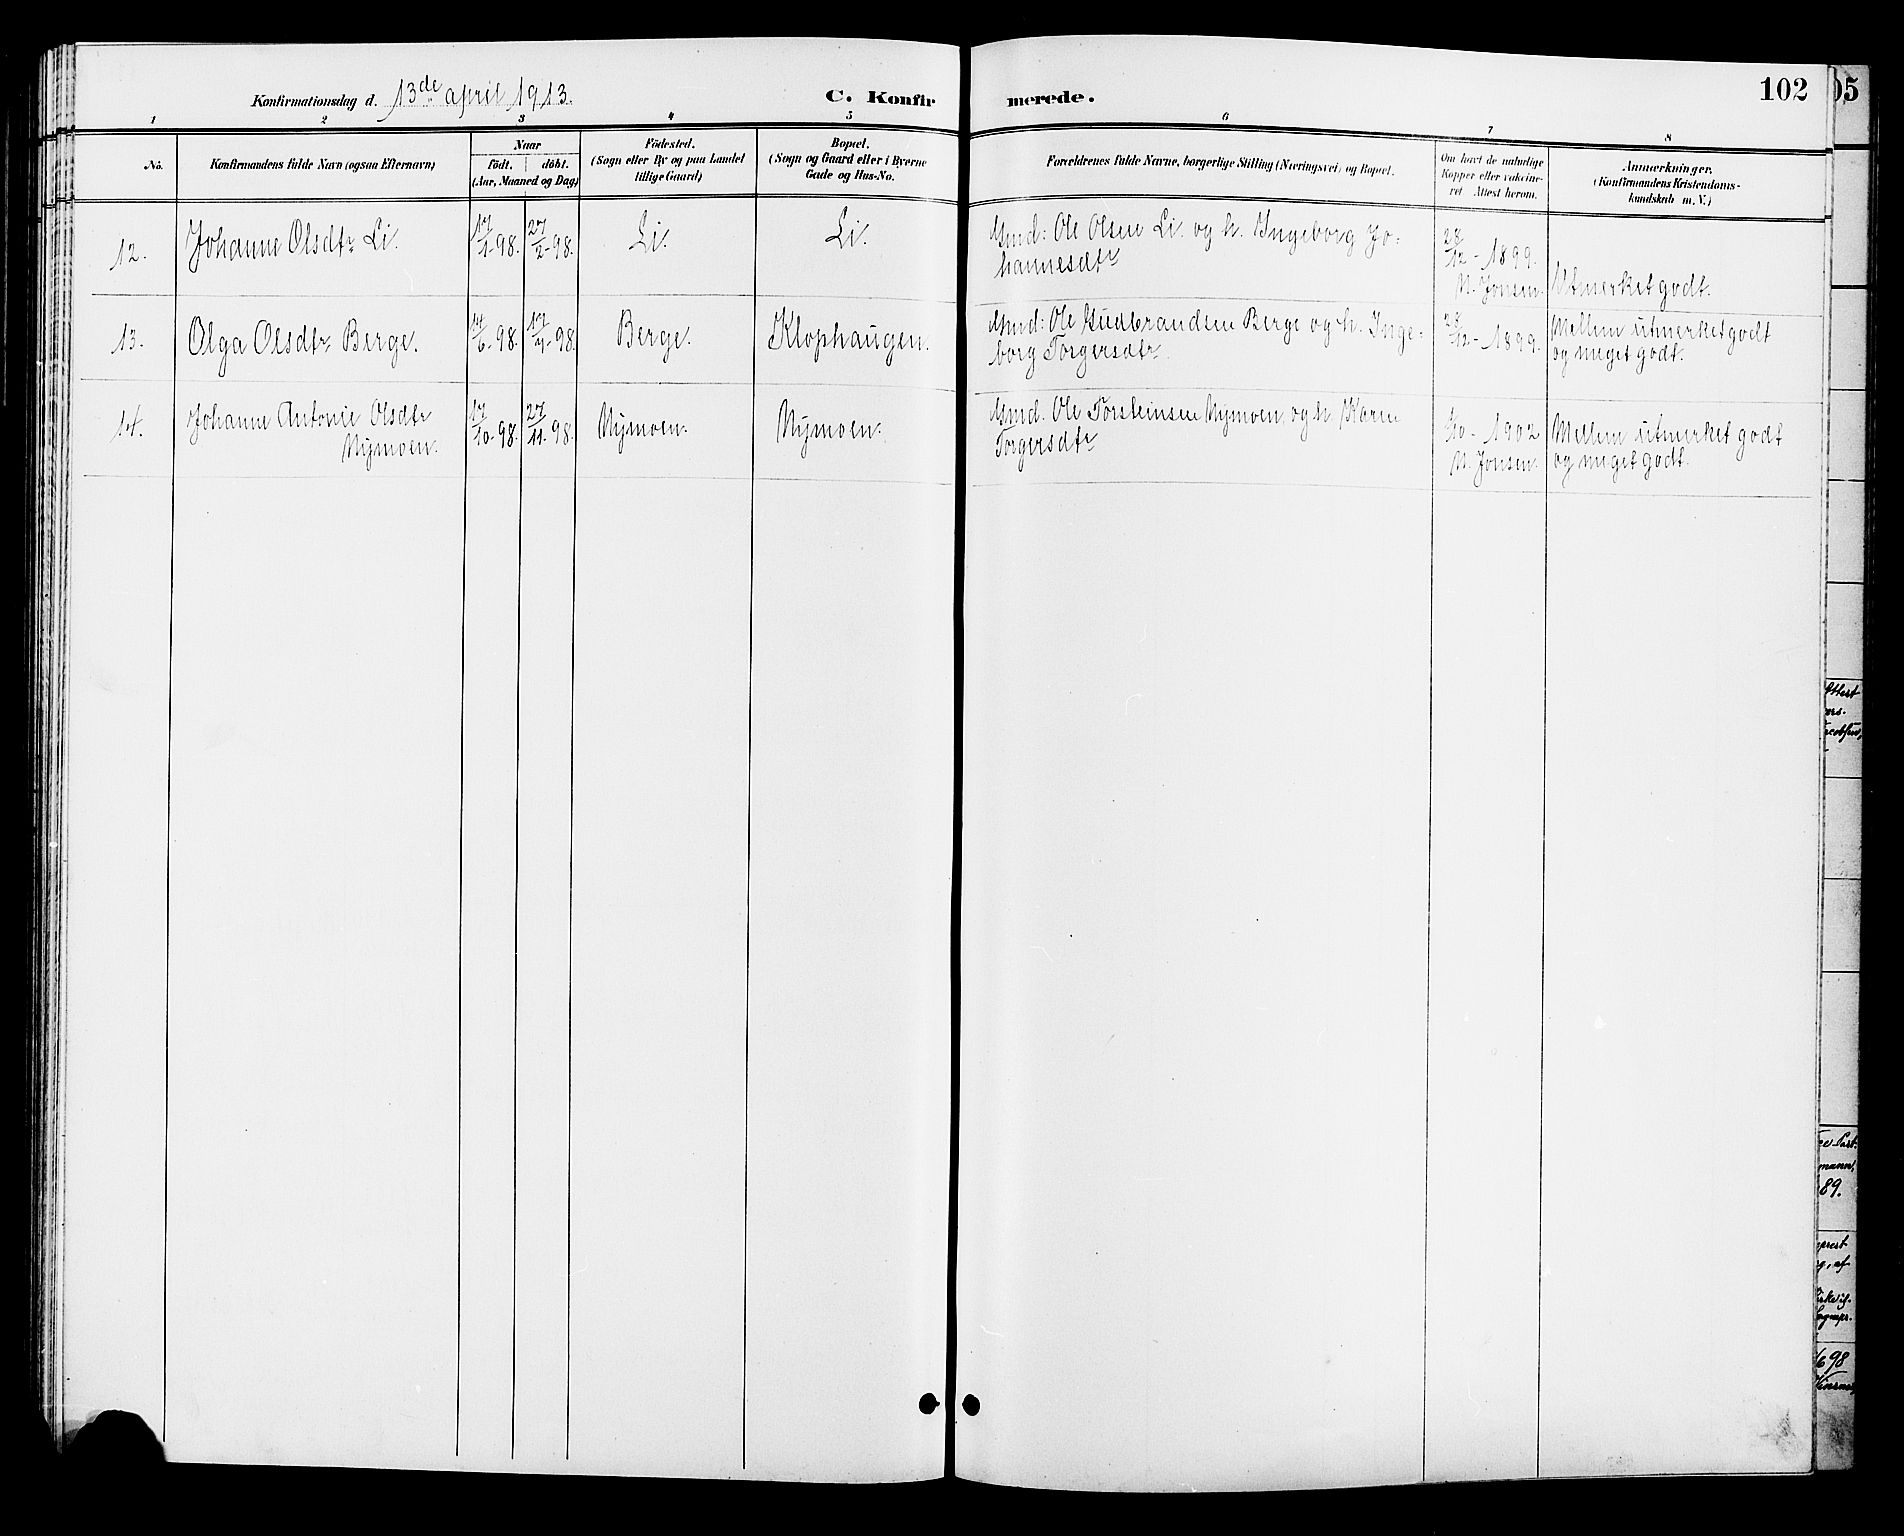 Konfirmationsdag d. 13de april 1913.
C. Konfirmerede.
102
05
1 2 3 4 5 6 7 8
No.
Konfirmandens fulde Navn (ogsaa Efternavn)
Naar
födt. döbt.
(Aar, Maaned og Dag)
Födested.
(Sogn eller By og paa Landet
tillige Gaard)
Bopæl.
(Sogn og Gaard eller i Byerne
Gade og Hus-No.
Forældrenes fulde Navne, borgerlige Stilling (Næringsvei) og Bopæl.
Om havt de naturlige
Kopper eller vakcine-
ret Attest herom.
Anmærkninger.
(Konfirmandens Kristendoms-
kundskab m. V.)
12. Johanne Olsdtr Li. 17/1-98. 27/2-98. Li. Li. Gmd: Ole Olsen Li og h. Ingeborg Jo-
hannesdtr
28/12-1899.
N. Jonsen.
Utmerket godt.
13. Olga Olsdtr Berge. 14/6-98. 17/7-98. Berge. Klophaugen. Gmd: Ole Gudbrandsen Berge og h. Inge-
borg Torgersdtr.
28/12-1899.
Mellem utmerket godt
og meget godt.
14. Johanne Antonie Olsdtr
Nymoen.
17/10-98. 27/11-98. Nymoen. Nymoen. Gmd. Ole Torsteinsen Nymoen og h Karen
Torgersdtr
/10-1902
N. Jonsen.
Mellem utmerket godt
og meget godt.
89.
98